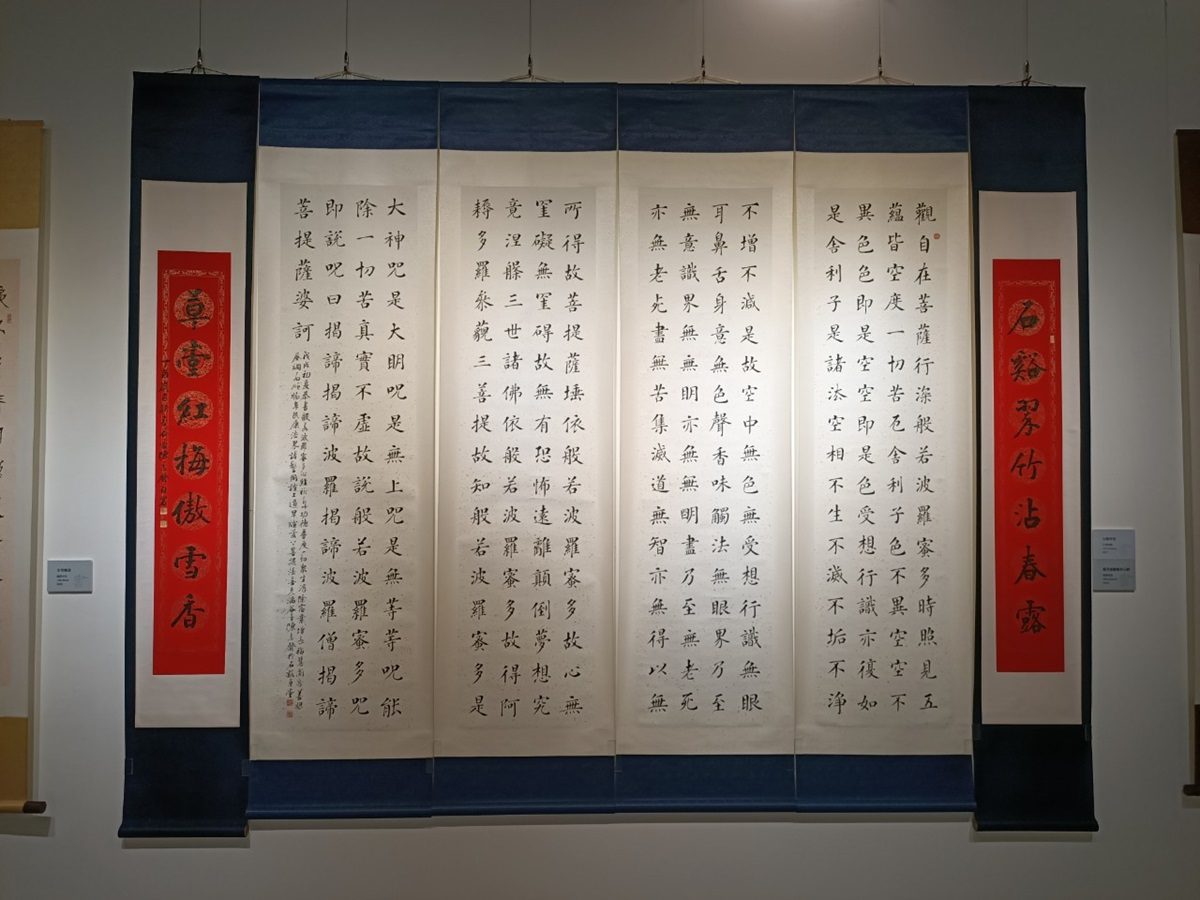 石谿翠竹沾春露
觀自在菩薩行深般若波羅蜜多時照見五
蘊皆空度一切苦厄舍利子色不異空空不
異色色即是空空即是色受想行識亦復如
是舍利子是諸法空相不生不滅不垢不淨
不增不減是故空中無色無受想行識無眼
耳鼻舌身意無色聲香味觸法無眼界乃至
無意識界無無明亦無無明盡乃至無老死
亦無老死盡無苦集滅道無智亦無得以無
所得故菩提薩埵依般若波羅蜜多故心無
罣礙無罣碍故無有恐怖遠離顛倒夢想究
竟涅槃三世諸佛依般若波羅蜜多故得阿
耨多羅叅藐三菩提故知般若波羅蜜多是
大神咒是大明呪是無上呪是無等等呪能
除一切苦真實不虛故說般若波羅蜜多呪
即說呪曰揭諦揭諦波羅揭諦波羅僧揭諦
菩提薩婆訶
草堂紅梅傲雪香